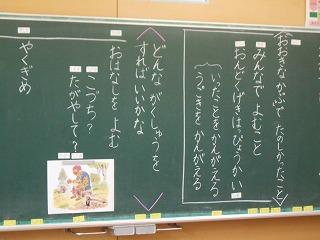 おおきなかぶでたのしかったこと
みんなで よむこと
おんどくげきはっぴょうかい
いったことをかんがえる
うごきを かんがえる
どんな がくしゅうを
すればいいかな
おはなしを よむ
こづち？
たがやして？
やくぎめ